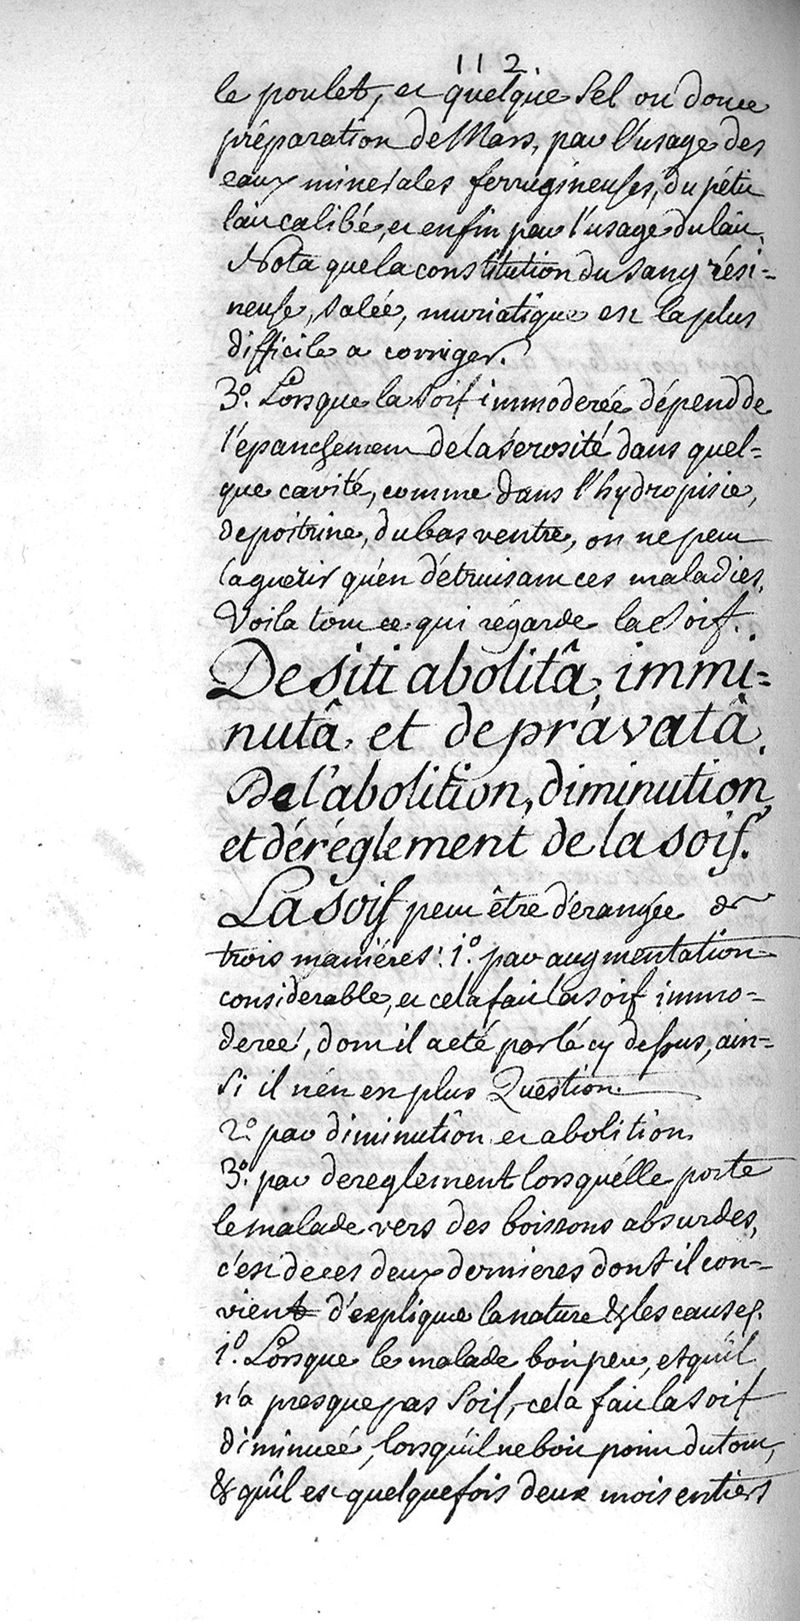 112.
le poulet, et quelque sel ou douce
préparation de Mars, par l'usage des
eaux minerales ferrugineuses, du petit
lait calibé, et enfin par l'usage du lait.
Nota que la constitution du sang rési=
neuse, salée, muriatique est la plus
difficile a corriger.
3.º Lorsque la soif immoderée dépend de
l'épanchement de la serosité dans quel=
que cavité, comme dans l'hydropisie,
de poitrine, du bas ventre, on ne peut
la guérir qu'en détruisant ces maladies,
Voila tout ce qui régarde la soif.
De siti abolitâ, immi=
nutâ, et depravatâ.
De l'abolition, diminution,
et déréglement de la soif.
La soif peut être dérangée de
trois manières: 1.º par augmentation
considerable, et cela fait la soif immo=
derée, dont il a eté parlé cy dessus, ain=
si il n'én est plus Question.
2.º par diminution et abolition.
3.º par dereglement lorsqu'élle porte
le malade vers des boissons absurdes,
c'est de ces deux dernieres dont il con=
vient d'explique la nature & les causes.
1.º Lorsque le malade boit peu, et qu'il
n'a presque pas soif, cela fait la soif
diminueé, lorsqu'il ne boit point du tout,
& qu'il est quelquefois deux mois entiers